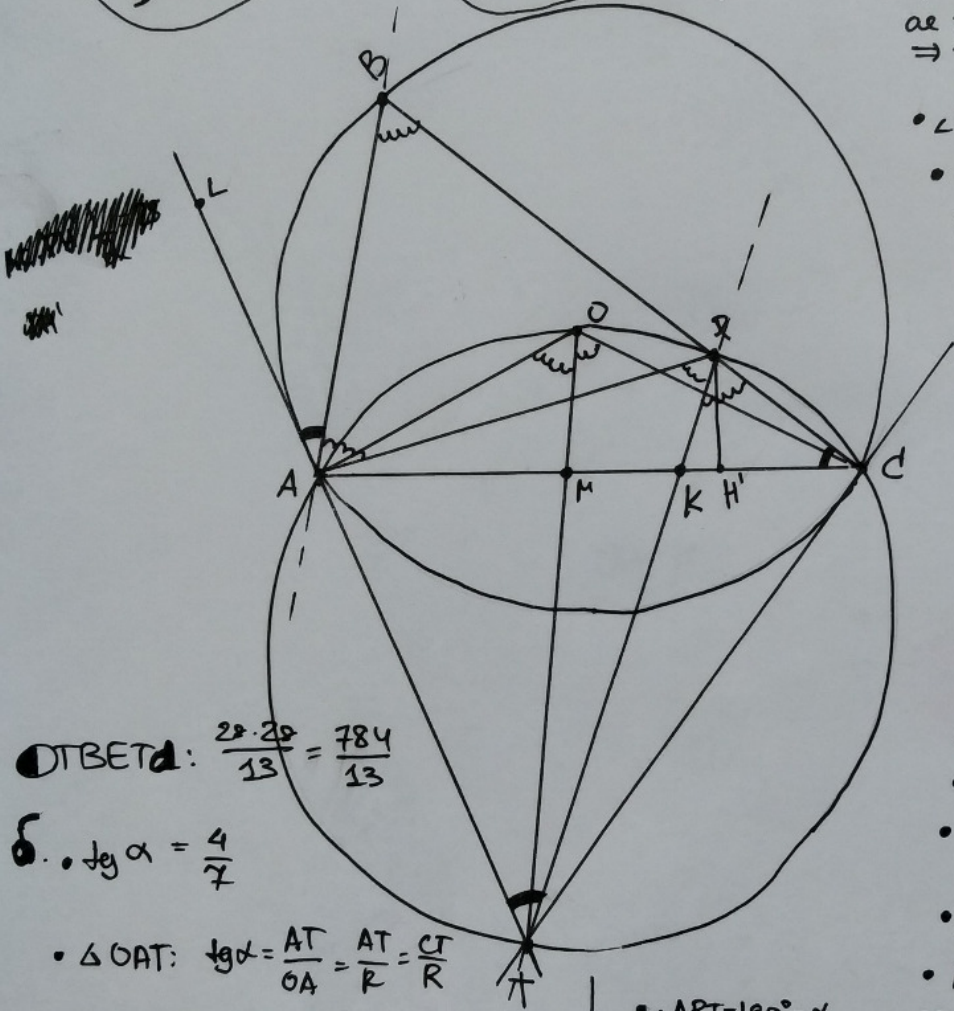 ae
⇒
B
L
• ∠
•
O
R
A
M
K
H'
C
ОТВЕТ: 28·28/13 = 784/13
б. • tg α = 4/7
• Δ OAT: tg α = AT/OA = AT/R = CT/R
T